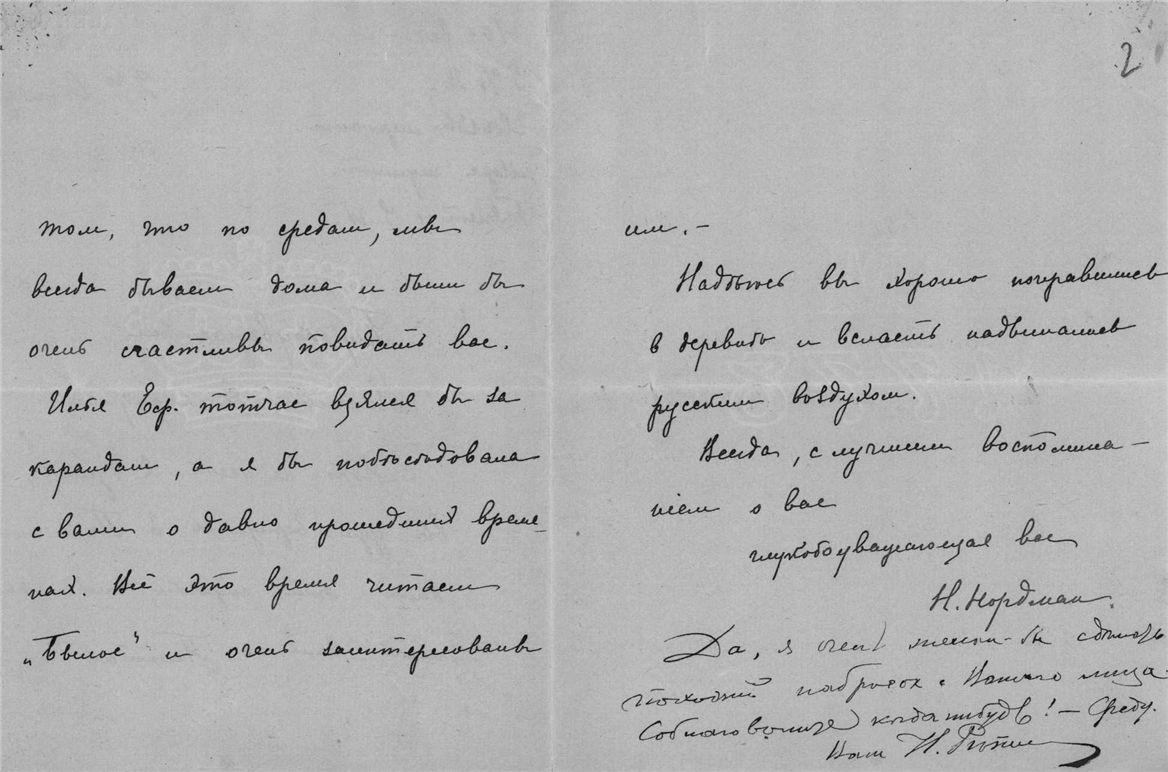 2
том, что по средам, мы
всегда бываем дома и были бы
очень счастливы повидать вас.
Илья Еф. тотчас взялся бы за
карандаш, а я бы побѣсѣдовала
с вами о давно прошедших време-
нах. Всё это время читаем
„Былое" и очень заинтересованы
им. –
Надѣюсь вы хорошо поправились
в деревнѣ и всласть надышались
русским воздухом.
Всегда, с лучшим воспомина –
нием о вас
глубокоуважающая вас
Н. Нордман.
Да, я очень желал-бы сдѣлать
похожий набросок с Вашего лица.
Соблаговолите когда нибудь! – Среду.
Ваш И. Рѣпин